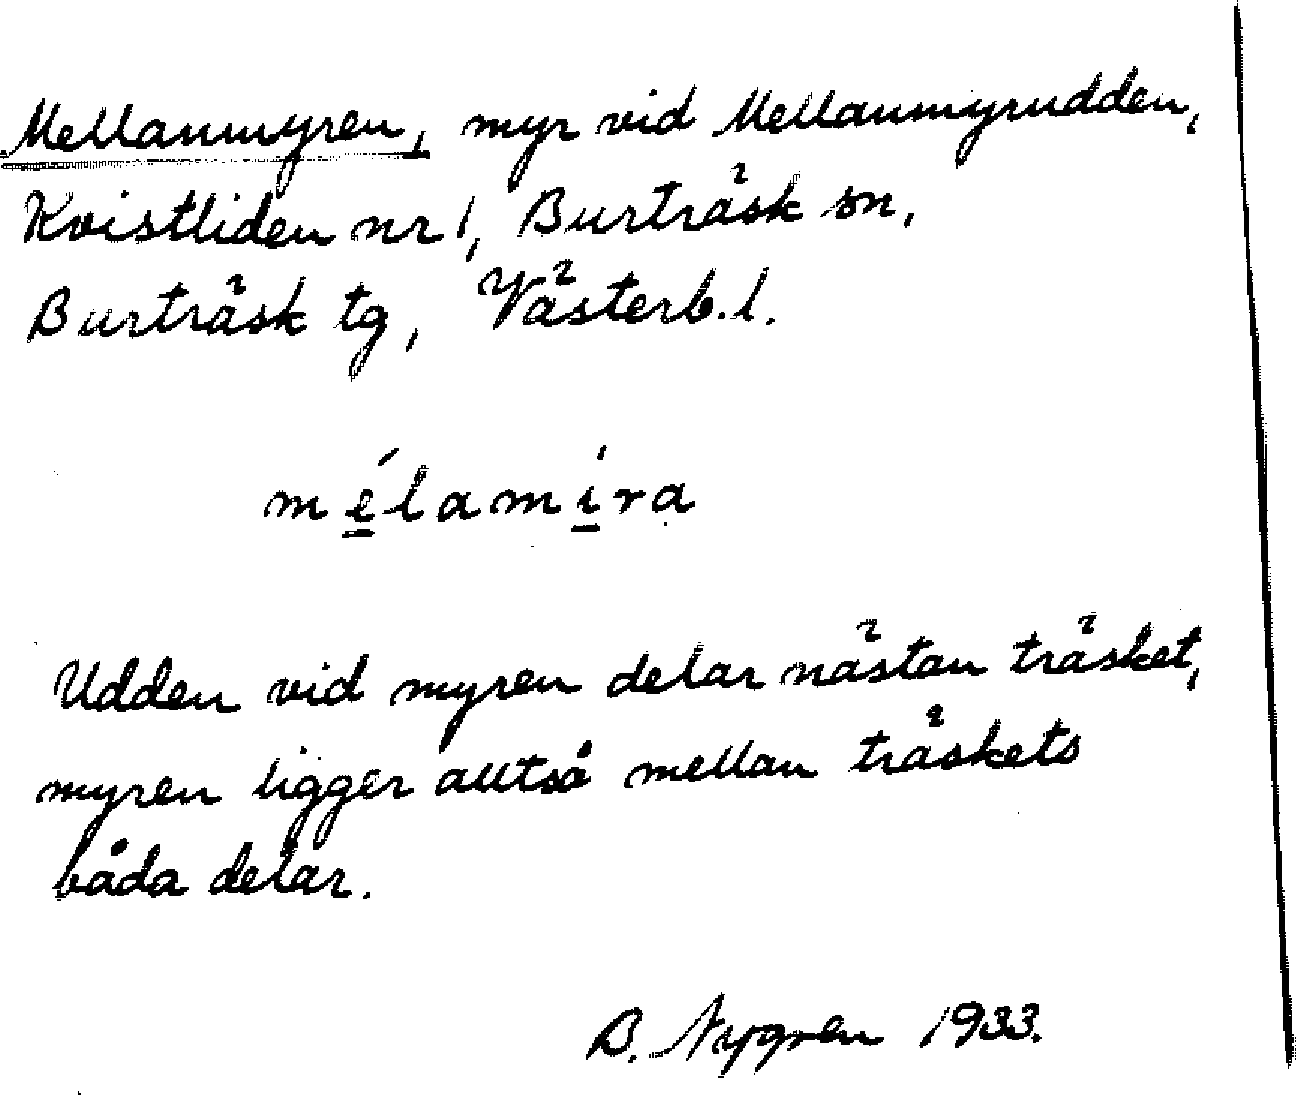 Mellanmyren, myr vid Mellanmyrudden,
Kvistliden nr 1, Burträsk sn,
Burträsk tg, Västerb. l.
mélamíra
Udden vid myren delar nästan träsket,
myren ligger alltså mellan träskets
båda delar.
B. Nygren 1933.